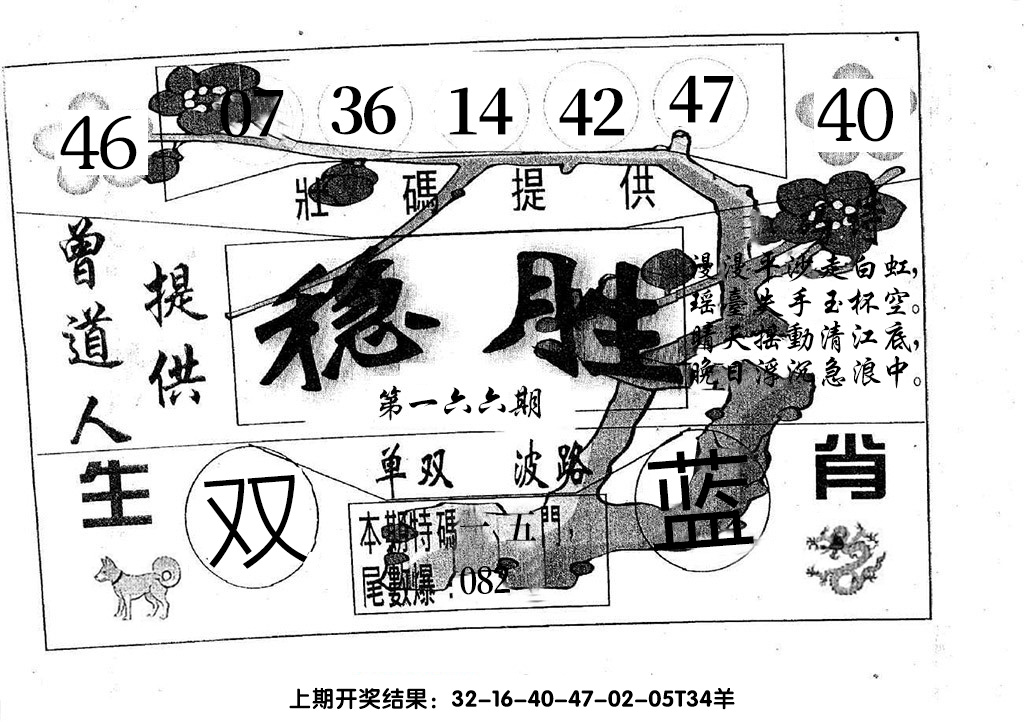 46 07 36 14 42 47 40
壯碼提供
曾道人
提供
稳胜
第一六六期
特
漫漫平沙走白虹，
瑶臺失手玉杯空。
晴天摇動清江底，
晚日浮沉急浪中。
单双 波路
生 双 蓝 肖
本期特碼一、五門，
尾數爆：082
上期开奖结果：32-16-40-47-02-05T34羊